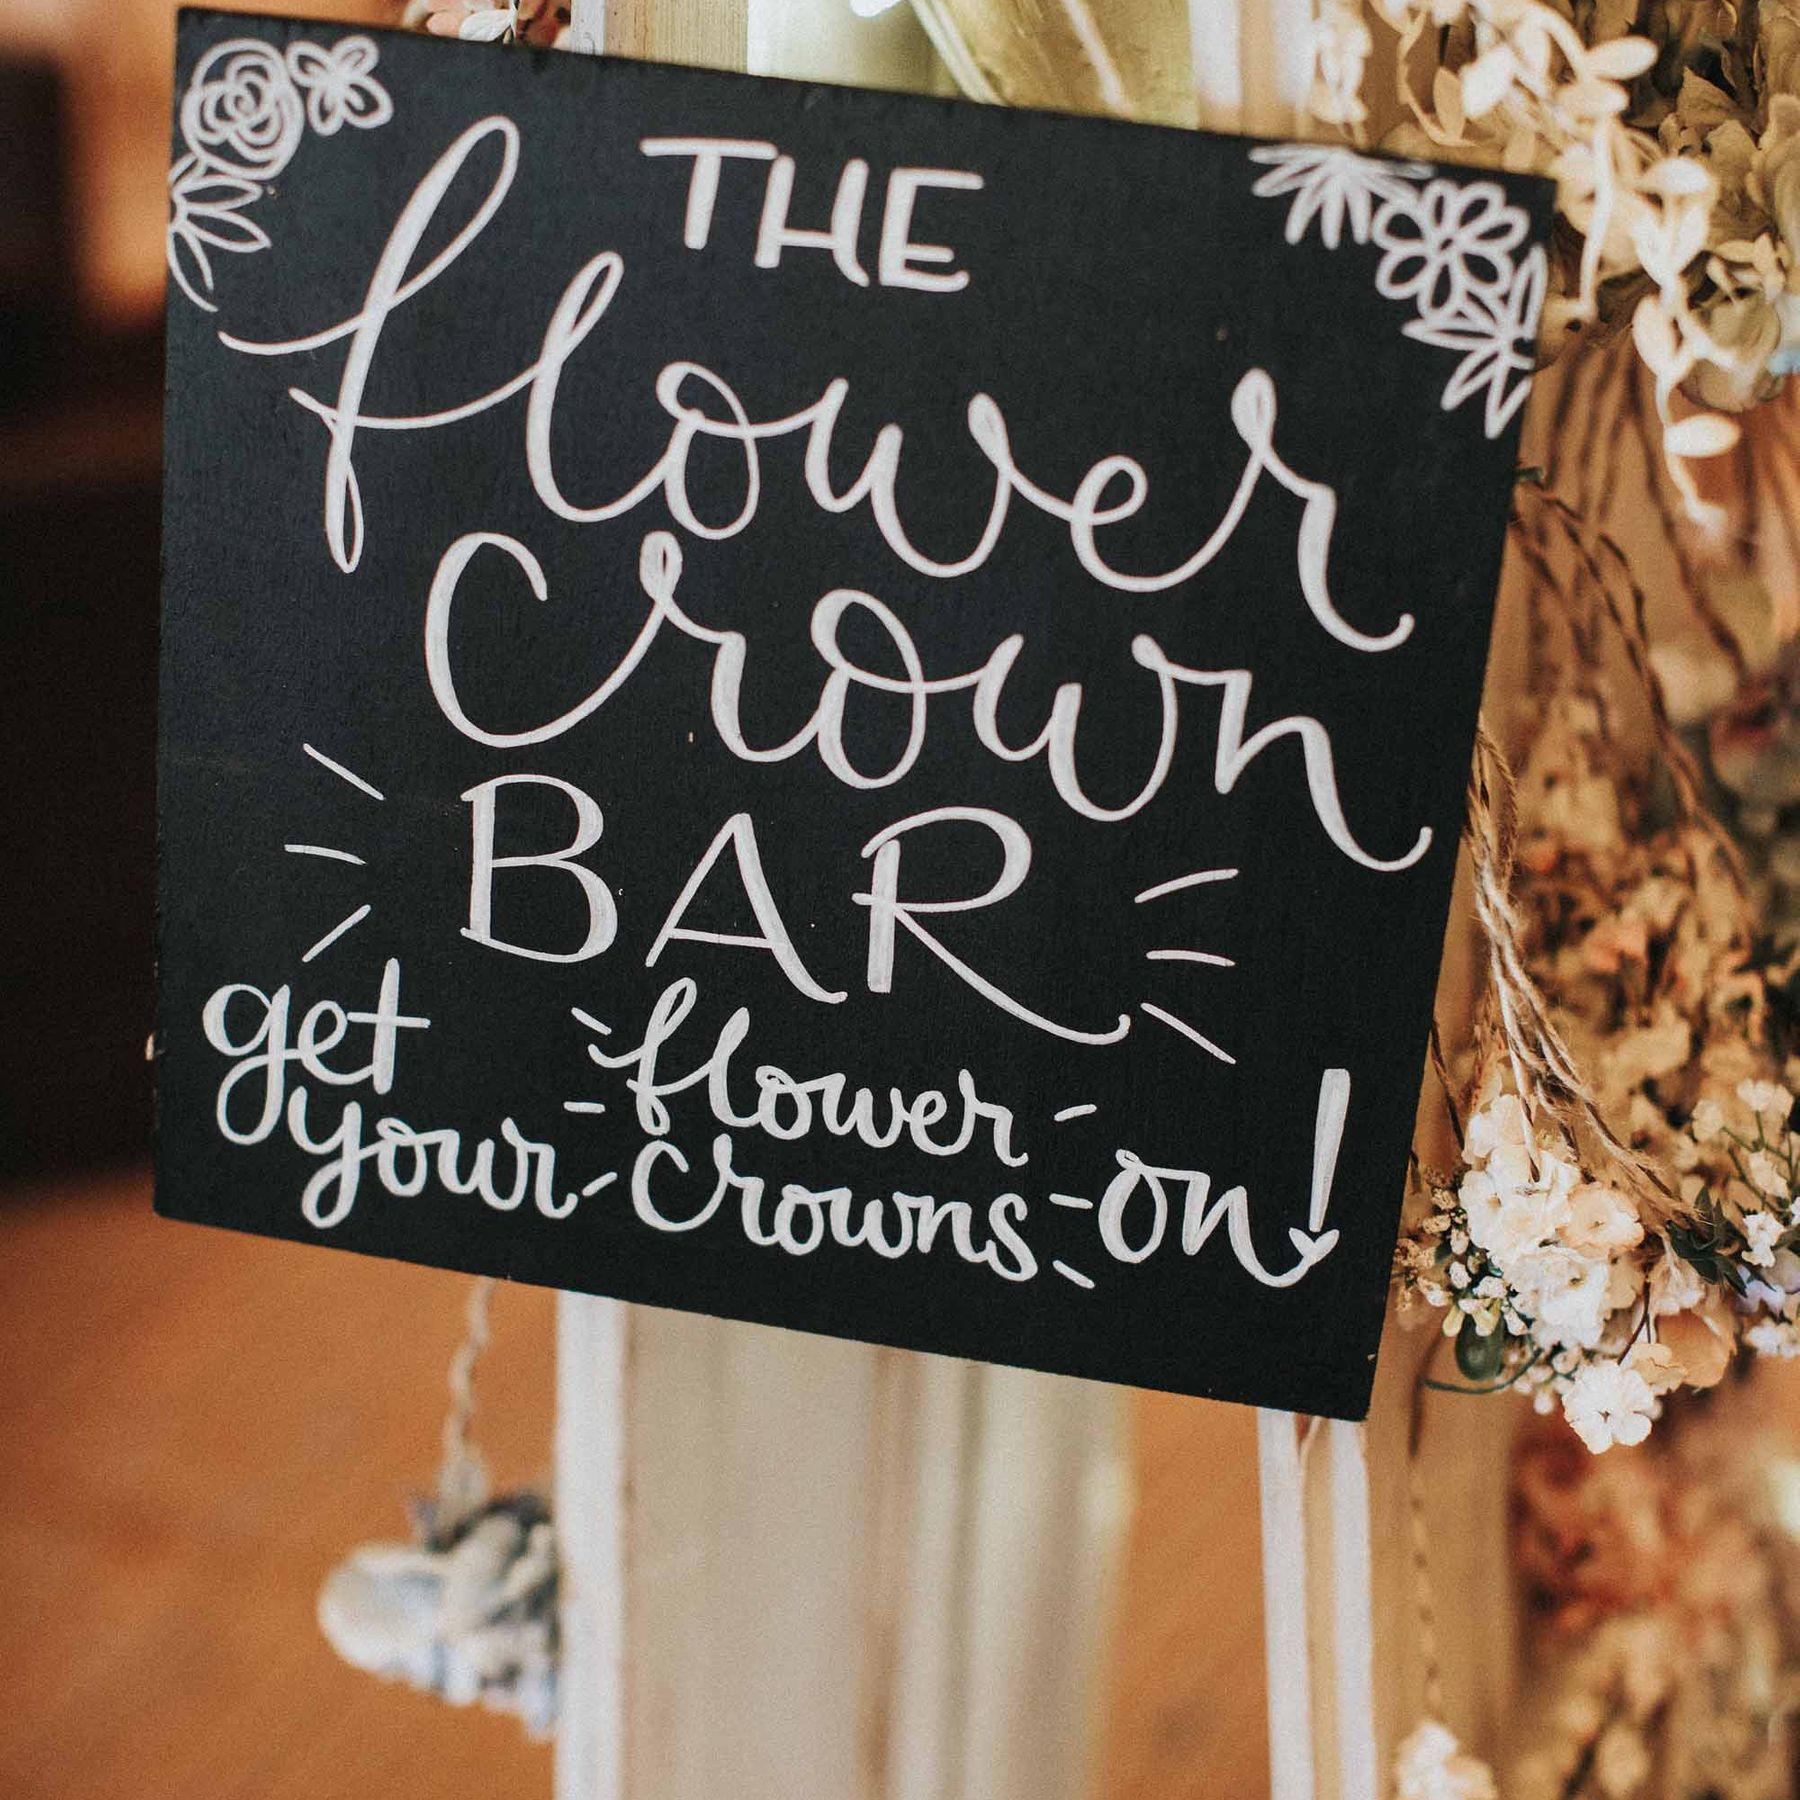 THE
flower
crown
BAR
get flower
your crowns on!